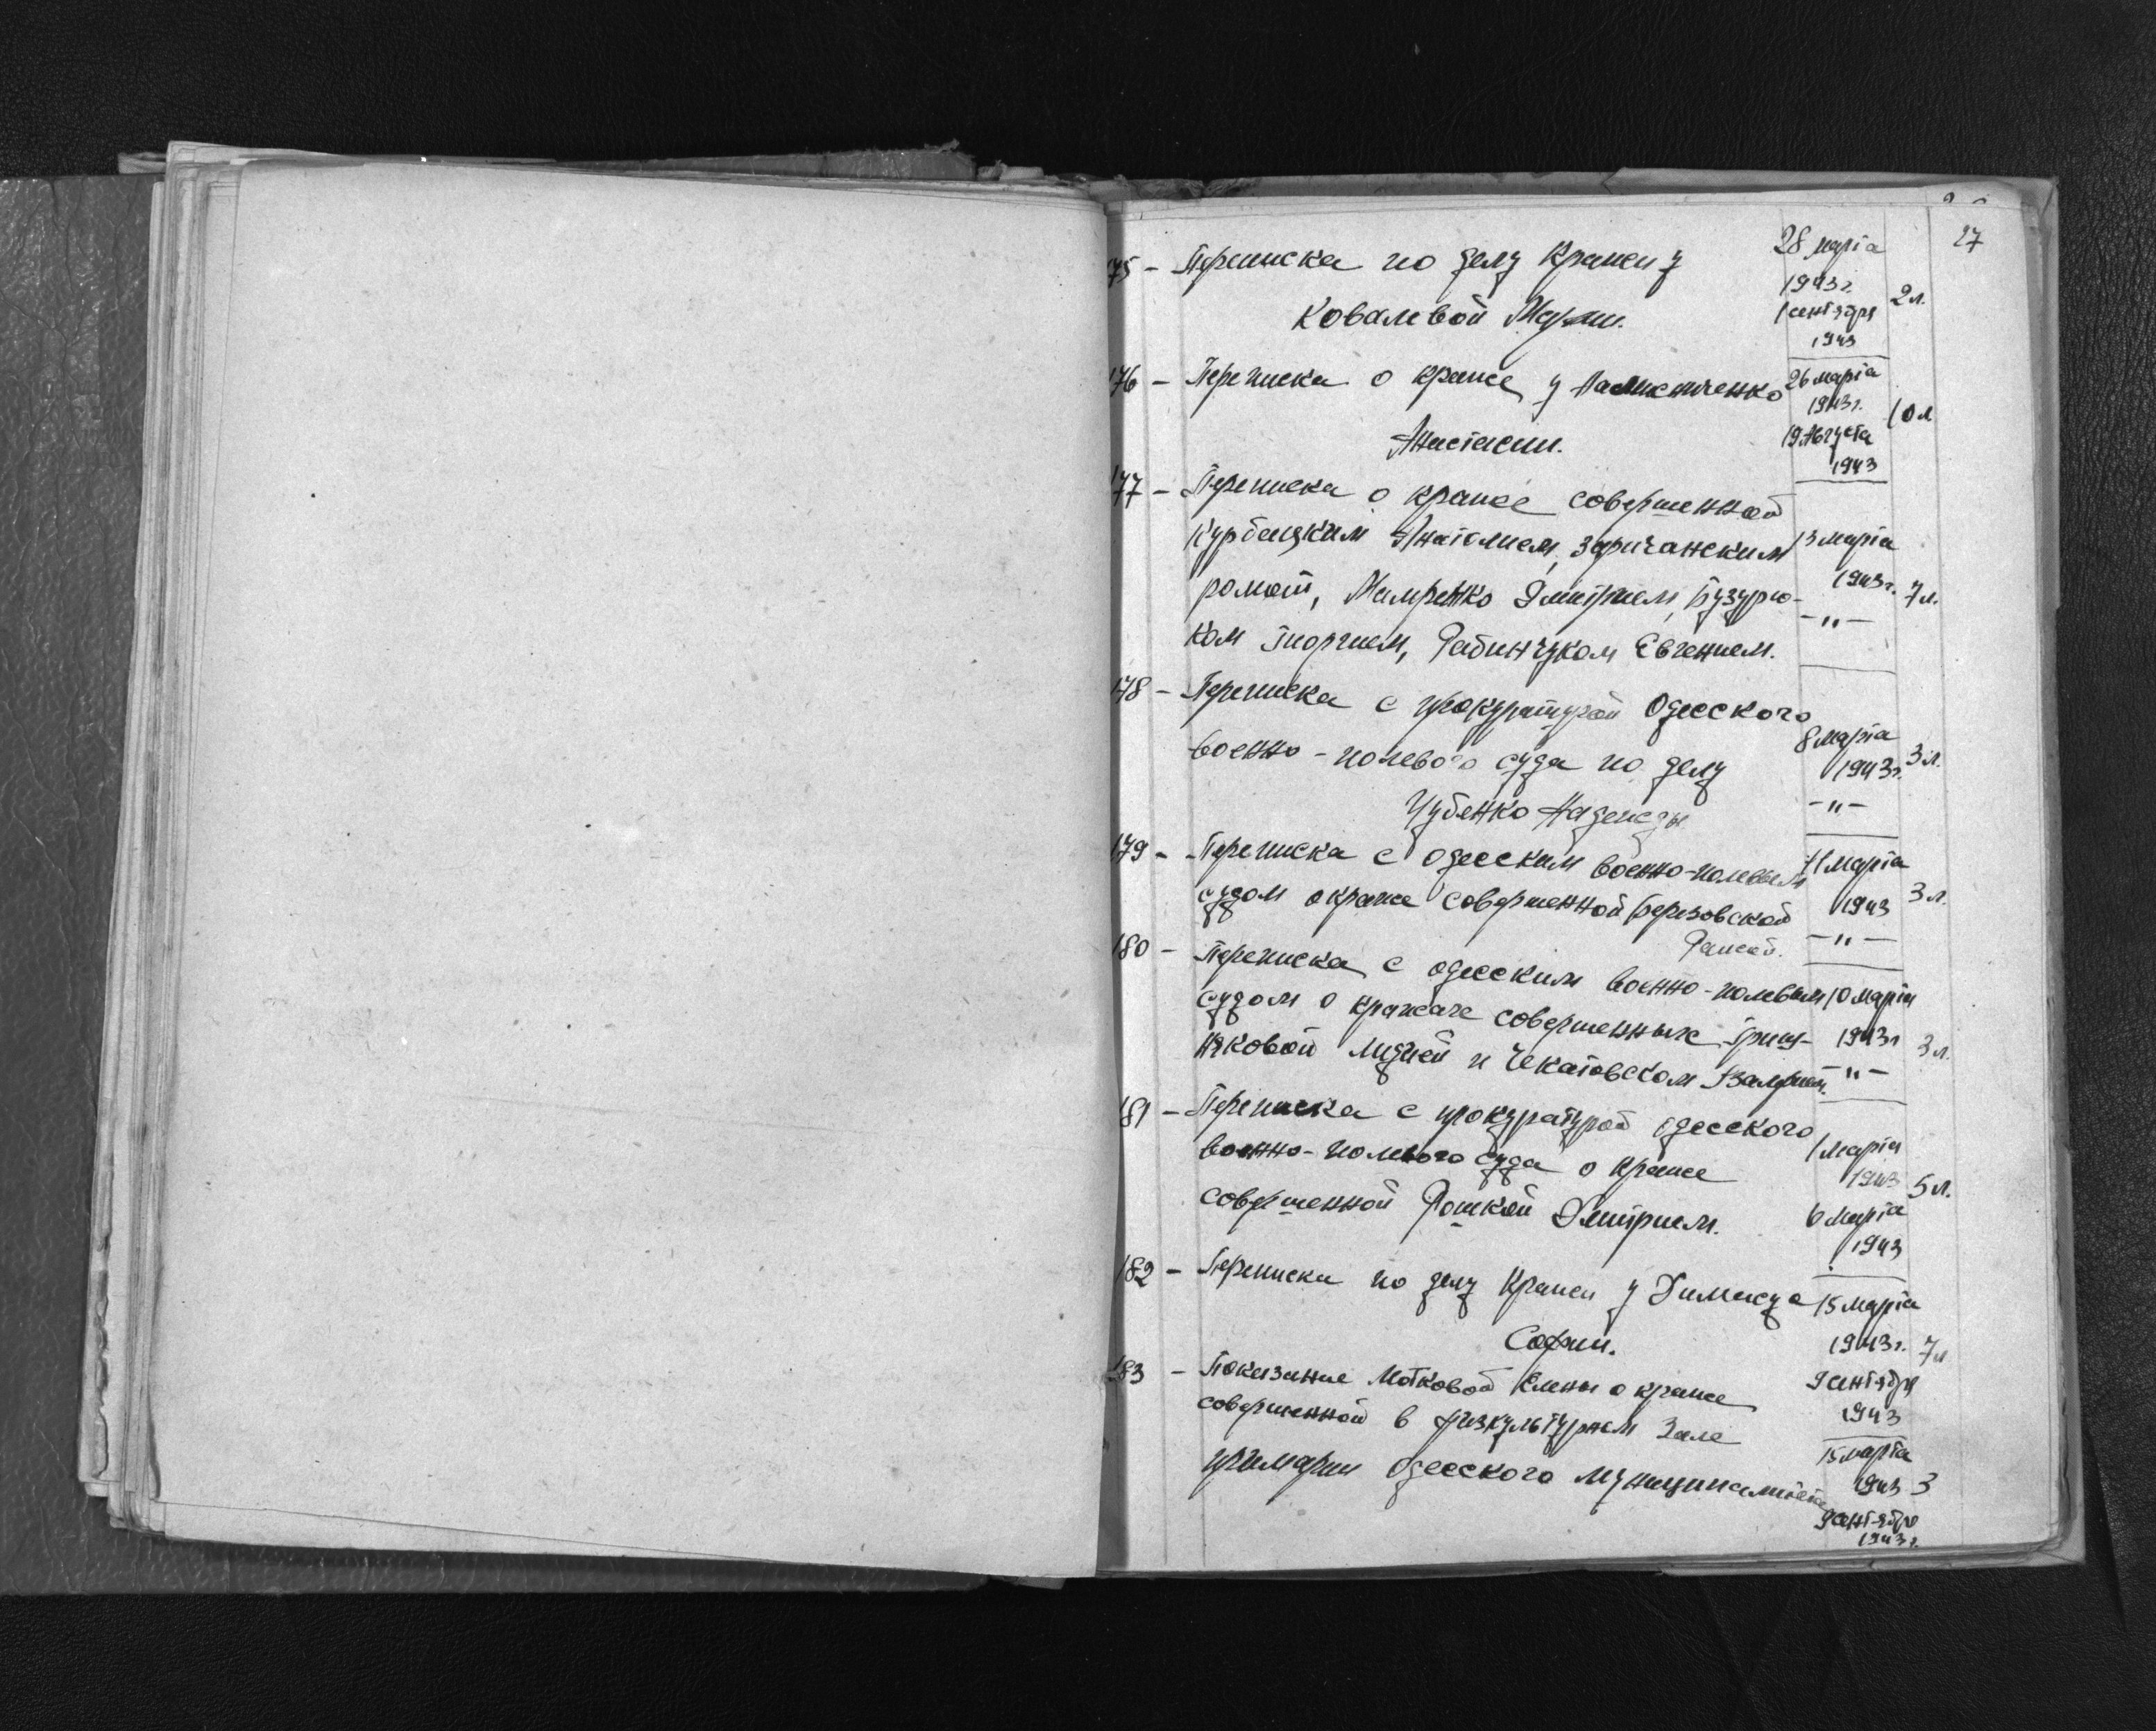 27
175 - Переписка по делу кражи у
Ковалевой Марии.
28 марта
1943 г.
1 сентября
1943
2 л.
176 - Переписка о краже у
Анастасии.
26 марта
1943 г.
19 Августа
1943
10 л
177 - Переписка о краже совершенной
Курбацким Анатолием, Заричанским
Роман, Мамренко Дмитрием, Бузурю-
ком Георгием, Рабинчуком Евгением.
13 марта
1943 г.
-"-
7 л.
178 - Переписка с прокуратурой Одесского
военно-полевого суда по делу
Чубенко Надежды
8 марта
1943 г.
-"-
3 л.
179 - Переписка с одесским военно-полевым
судом о краже совершенной Березовской
Раисой.
11 марта
1943
-"-
3 л.
180 - Переписка с одесским военно-полевым
судом о кражах совершенных Грищ-
няковой Лидией и Чекатовским
10 марта
1943 г
-"-
3 л.
181 - Переписка с прокуратурой одесского
военно-полевого суда о краже
совершенной Рошкой Дмитрием.
1 марта
1943
6 марта
1943
5 л.
182 - Переписка по делу кражи у
Софии.
15 марта
1943 г.
9 сентября
1943
7 л
183 - Показание Мотковой Елены о краже
совершенной в физкультурном зале
примарии Одесского муниципалитета
15 марта
1943
9 сентября
1943 г.
3